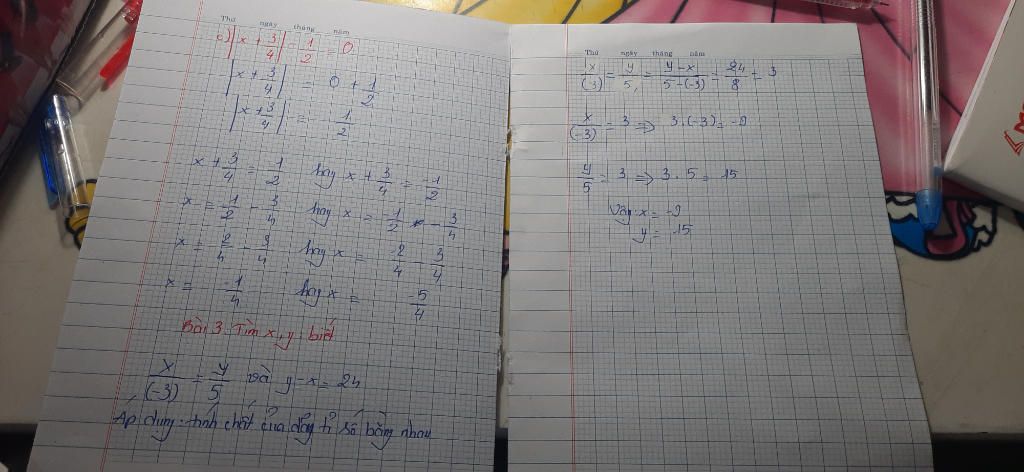 Thứ ngày tháng năm
c) |x + 3/4| - 1/2 = 0
|x + 3/4| = 0 + 1/2
|x + 3/4| = 1/2
x + 3/4 = 1/2 hay x + 3/4 = -1/2
x = 1/2 - 3/4 hay x = -1/2 - 3/4
x = 2/4 - 3/4 hay x = -2/4 - 3/4
x = -1/4 hay x = -5/4
Bài 3. Tìm x, y biết
x/(-3) = y/5 và y-x = 24
Áp dụng tính chất của dãy tỉ số bằng nhau
Thứ ngày tháng năm
x/(-3) = y/5 = y-x/5-(-3) = 24/8 = 3
x/(-3) = 3 => 3.(-3) = -9
y/5 = 3 => 3.5 = 15
Vậy x = -9
y = 15